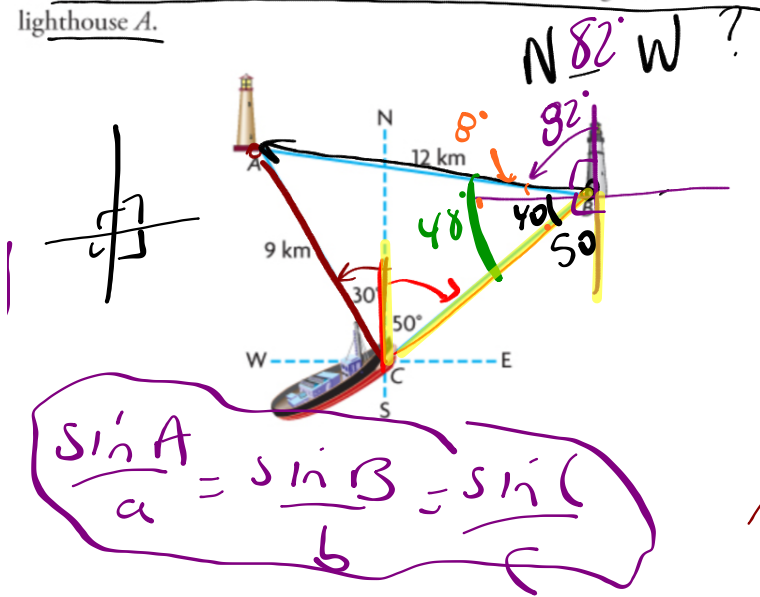 lighthouse A.
N 82° W ?
82°
8°
N
12 km
A
B
48°
40
50
9 km
30°
50°
W
E
C
S
sin A / a = sin B / b = sin C / c